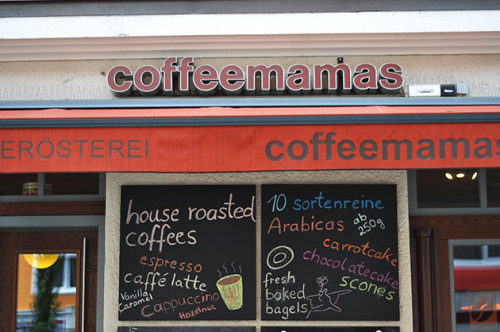 coffeemamas
ERÖSTEREI
coffeemamas
house roasted
coffees
espresso
caffé latte
Vanilla
Caramel
Cappuccino
Hazelnut
10 sortenreine
Arabicas ab
250g
carrotcake
chocolatecake
scones
fresh
baked
bagels